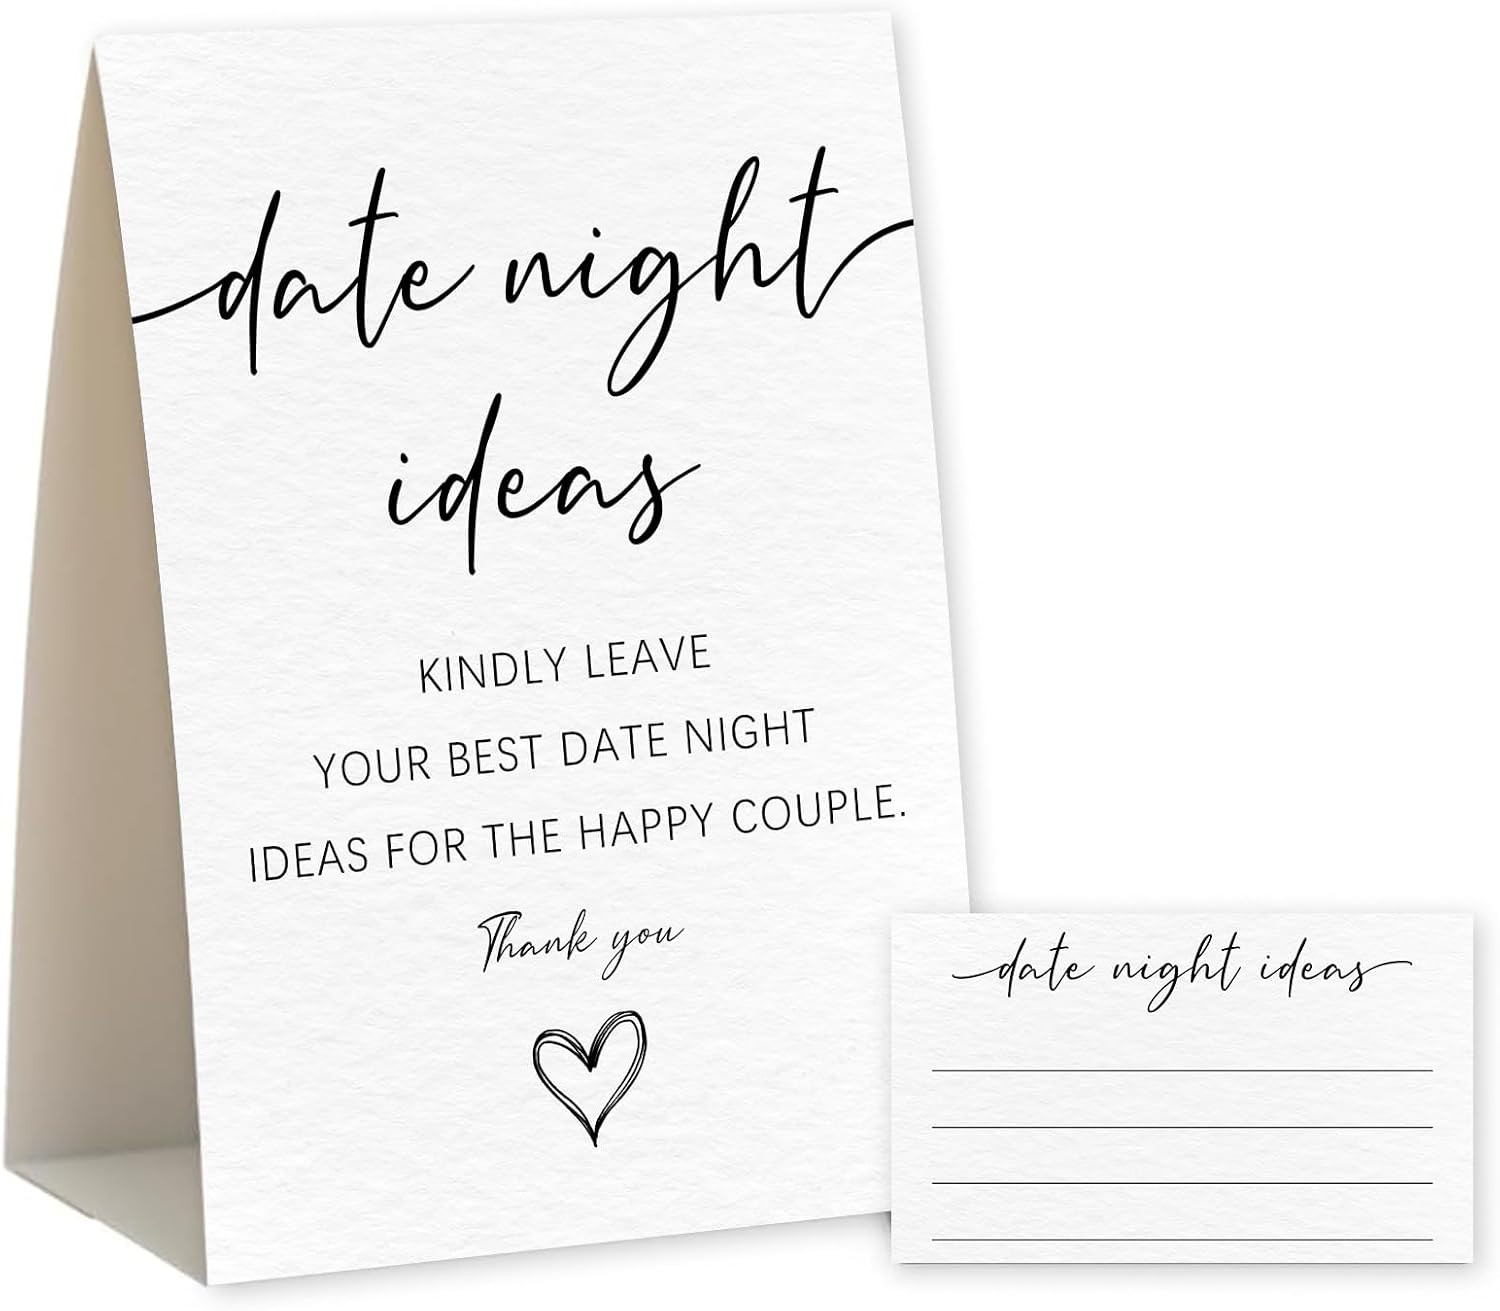 date night
ideas
KINDLY LEAVE
YOUR BEST DATE NIGHT
IDEAS FOR THE HAPPY COUPLE.
Thank you
date night ideas